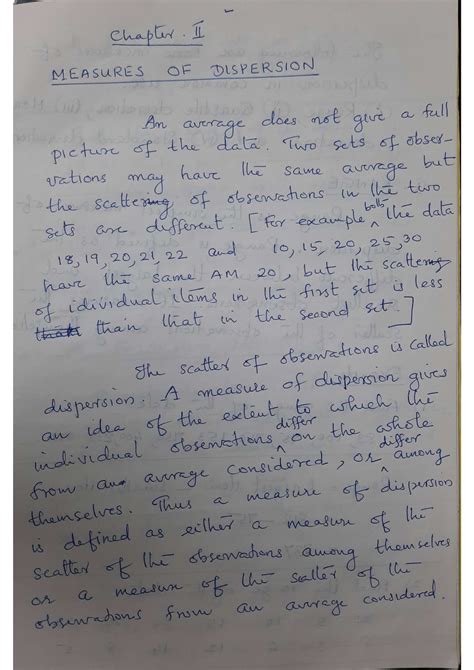 Chapter. II
MEASURES OF DISPERSION
An average does not give a full
picture of the data. Two sets of obser-
vations may have the same average but
the scattering of observations in the two
sets are different. [For example both the data
18, 19, 20, 21, 22 and 10, 15, 20, 25, 30
have the same AM 20, but the scattering
of idividual items in the first set is less
than that in the second set.]
The scatter of observations is called
dispersion. A measure of dispersion gives
an idea of the extent to which the
individual observations differ on the whole
from an average considered, or differ among
themselves. Thus a measure of dispersion
is defined as either a measure of the
scatter of the observations among themselves
or a measure of the scatter of the
observations from an average considered.